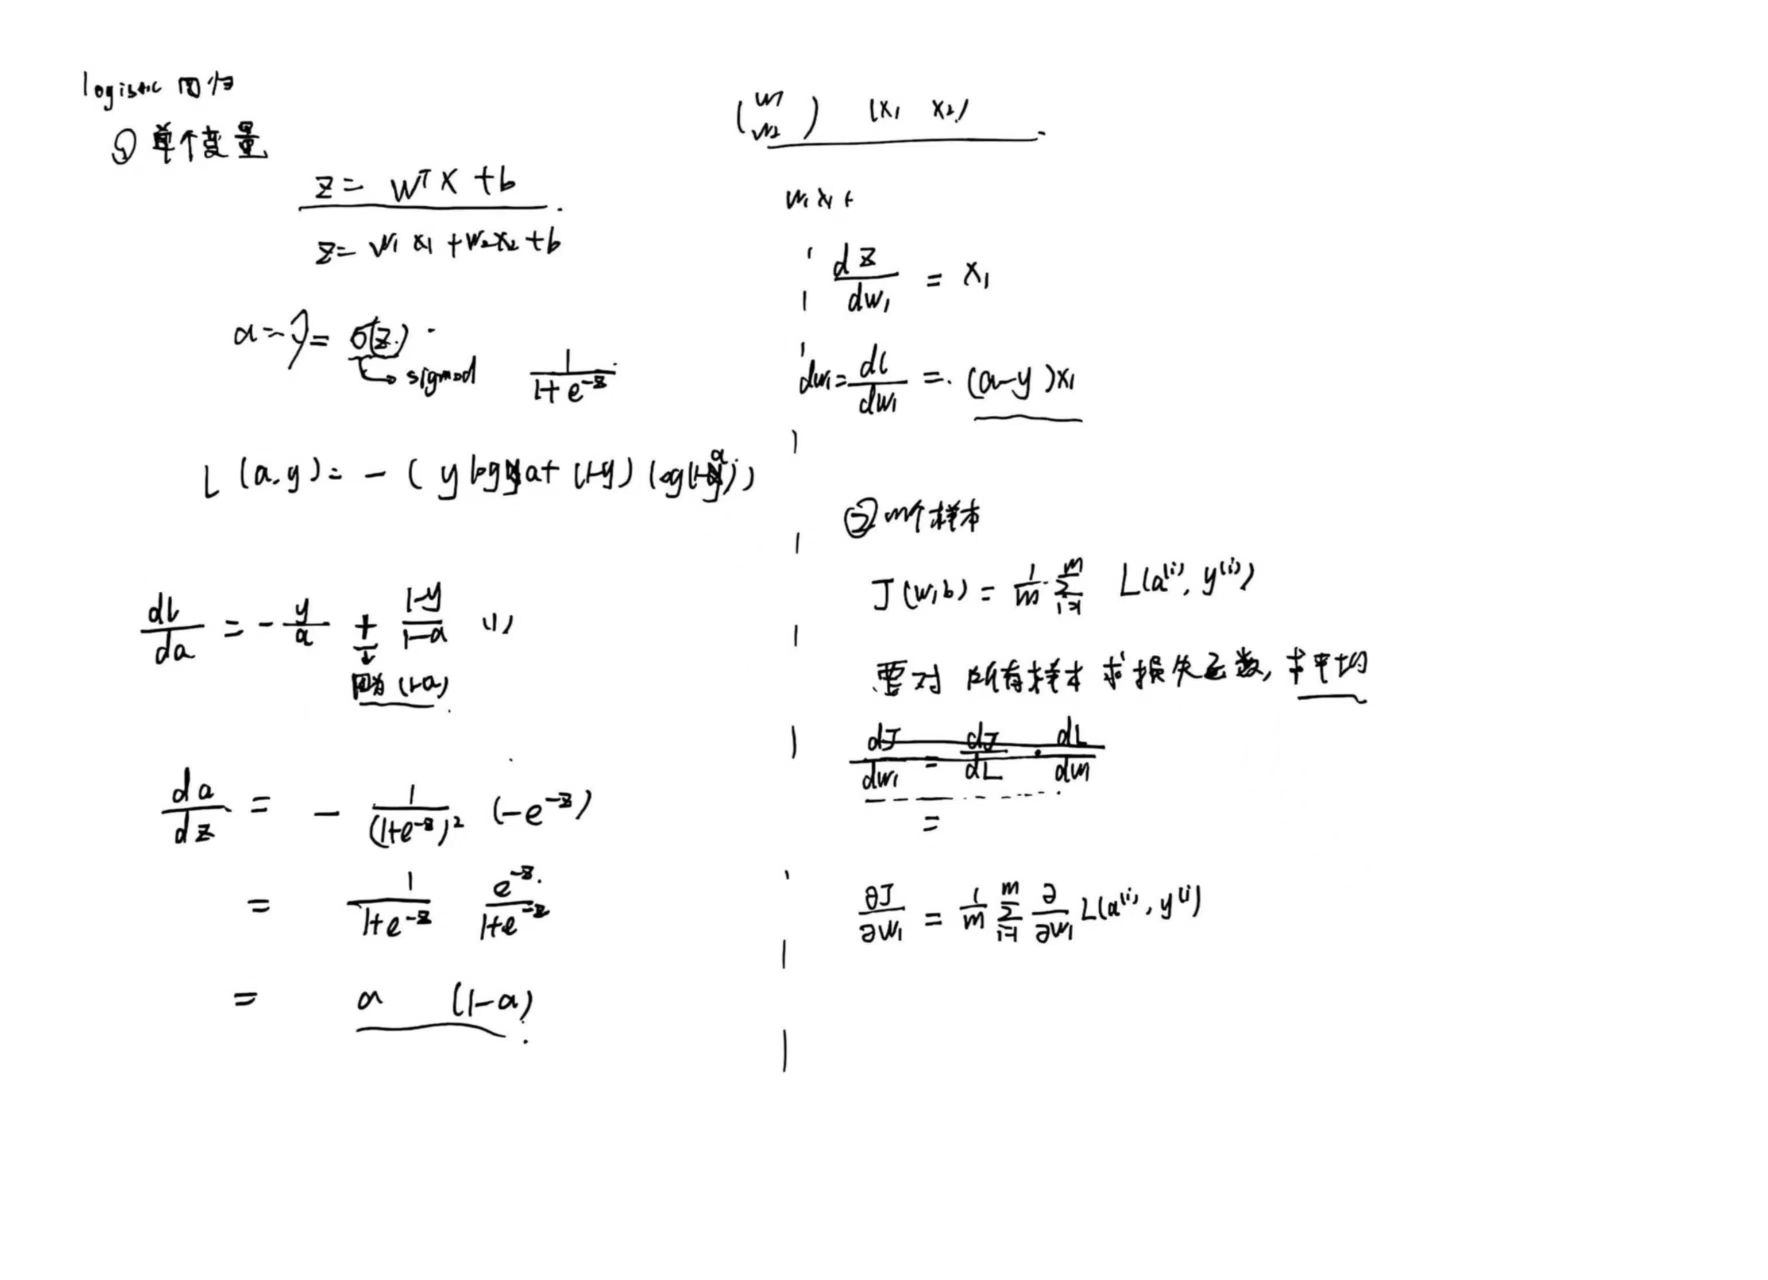 logistic 回归
① 单个变量
z = wᵀx + b
z = w₁x₁ + w₂x₂ + b
a = ŷ = σ(z)
sigmod 1/(1+e^(-z))
L(a,y) = -(y log a + (1-y) log(1-a))
dL/da = -y/a + (1-y)/(1-a) (1)
因为 (1-a)
da/dz = - 1/(1+e^(-z))² (-e^(-z))
= 1/(1+e^(-z)) e^(-z)/(1+e^(-z))
= a (1-a)
(w₁ w₂) (x₁ x₂)
w₁x₁+
dz/dw₁ = x₁
dw₁ = dL/dw₁ = (a-y)x₁
② m个样本
J(w,b) = 1/m Σ_{i=1}^{m} L(a⁽ⁱ⁾, y⁽ⁱ⁾)
要对所有样本求损失函数, 求平均
dJ/dw₁ = dJ/dL · dL/dw₁
=
∂J/∂w₁ = 1/m Σ_{i=1}^{m} ∂/∂w₁ L(a⁽ⁱ⁾, y⁽ⁱ⁾)